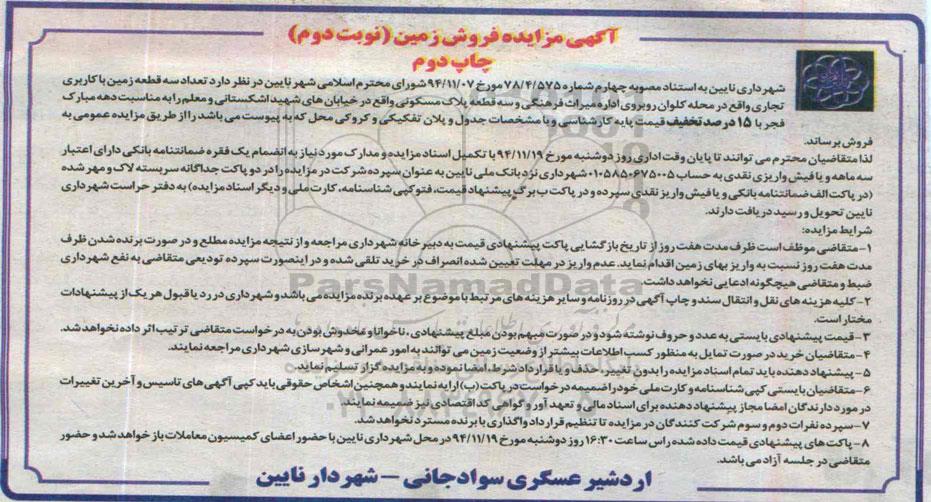 آگهی مزایده فروش زمین (نوبت دوم)
چاپ دوم
شهرداری نایین به استناد مصوبه چهارم شماره ۷۸/۴/۵۷۵ مورخ ۹۴/۱۱/۰۷ شورای محترم اسلامی شهر نایین در نظر دارد تعداد سه قطعه زمین با کاربری
تجاری واقع در محله کلوان روبروی اداره میراث فرهنگی و سه قطعه پلاک مسکونی واقع در خیابان های شهید اشکستانی و معلم را به مناسبت دهه مبارک
فجر با ۱۵ درصد تخفیف قیمت پایه کارشناسی و با مشخصات جدول و پلان تفکیکی و کروکی محل که به پیوست می باشد را از طریق مزایده عمومی به
فروش برساند.
لذا متقاضیان محترم می توانند تا پایان وقت اداری روز دوشنبه مورخ ۹۴/۱۱/۱۹ با تکمیل اسناد مزایده و مدارک مورد نیاز به انضمام یک فقره ضمانتنامه بانکی دارای اعتبار
سه ماهه و یا فیش واریزی نقدی به حساب ۰۱۰۵۸۵۰۶۷۵۰۰۵ شهرداری نزد بانک ملی نایین به عنوان سپرده شرکت در مزایده را در دو پاکت جداگانه سربسته لاک و مهر شده
(در پاکت الف ضمانتنامه بانکی و یا فیش واریز نقدی سپرده و در پاکت ب برگ پیشنهاد قیمت، فتوکپی شناسنامه، کارت ملی و دیگر اسناد مزایده) به دفتر حراست شهرداری
نایین تحویل و رسید دریافت دارند.
شرایط مزایده:
۱- متقاضی موظف است ظرف مدت هفت روز از تاریخ بازگشایی پاکت پیشنهادی قیمت به دبیرخانه شهرداری مراجعه و از نتیجه مزایده مطلع و در صورت برنده شدن ظرف
مدت هفت روز نسبت به واریز بهای زمین اقدام نماید. عدم واریز در مهلت تعیین شده انصراف در خرید تلقی شده و در اینصورت سپرده تودیعی متقاضی به نفع شهرداری
ضبط و متقاضی هیچگونه ادعایی نخواهد داشت.
۲- کلیه هزینه های نقل و انتقال سند و چاپ آگهی در روزنامه و سایر هزینه های مرتبط با موضوع بر عهده برنده مزایده می باشد و شهرداری در رد یا قبول هر یک از پیشنهادات
مختار است.
۳- قیمت پیشنهادی بایستی به عدد و حروف نوشته شود و در صورت مبهم بودن مبلغ پیشنهادی، ناخوانا و مخدوش بودن به درخواست متقاضی ترتیب اثر داده نخواهد شد.
۴- متقاضیان خرید در صورت تمایل به منظور کسب اطلاعات بیشتر از وضعیت زمین می توانند به امور عمرانی و شهرسازی شهرداری مراجعه نمایند.
۵- پیشنهاد دهنده باید تمام اسناد مزایده را بدون تغییر، حذف و یا قرار داد شرط، امضا نموده و به مزایده گزار تسلیم نماید.
۶- متقاضیان بایستی کپی شناسنامه و کارت ملی خود را ضمیمه درخواست در پاکت (ب) ارایه نمایند و همچنین اشخاص حقوقی باید کپی آگهی های تاسیس و آخرین تغییرات
در مورد دارندگان امضا مجاز پیشنهاد دهنده برای اسناد مالی و تعهد آور و گواهی کد اقتصادی نیز ضمیمه نمایند
۷- سپرده نفرات دوم و سوم شرکت کنندگان در مزایده تا تنظیم قرار داد واگذاری با برنده مسترد نخواهد شد.
۸- پاکت های پیشنهادی قیمت داده شده راس ساعت ۱۶:۳۰ روز دوشنبه مورخ ۹۴/۱۱/۱۹ در محل شهرداری نایین با حضور اعضای کمیسیون معاملات باز خواهد شد و حضور
متقاضی در جلسه آزاد می باشد.
اردشیر عسگری سوادجانی - شهردار نایین
ParsNamadData